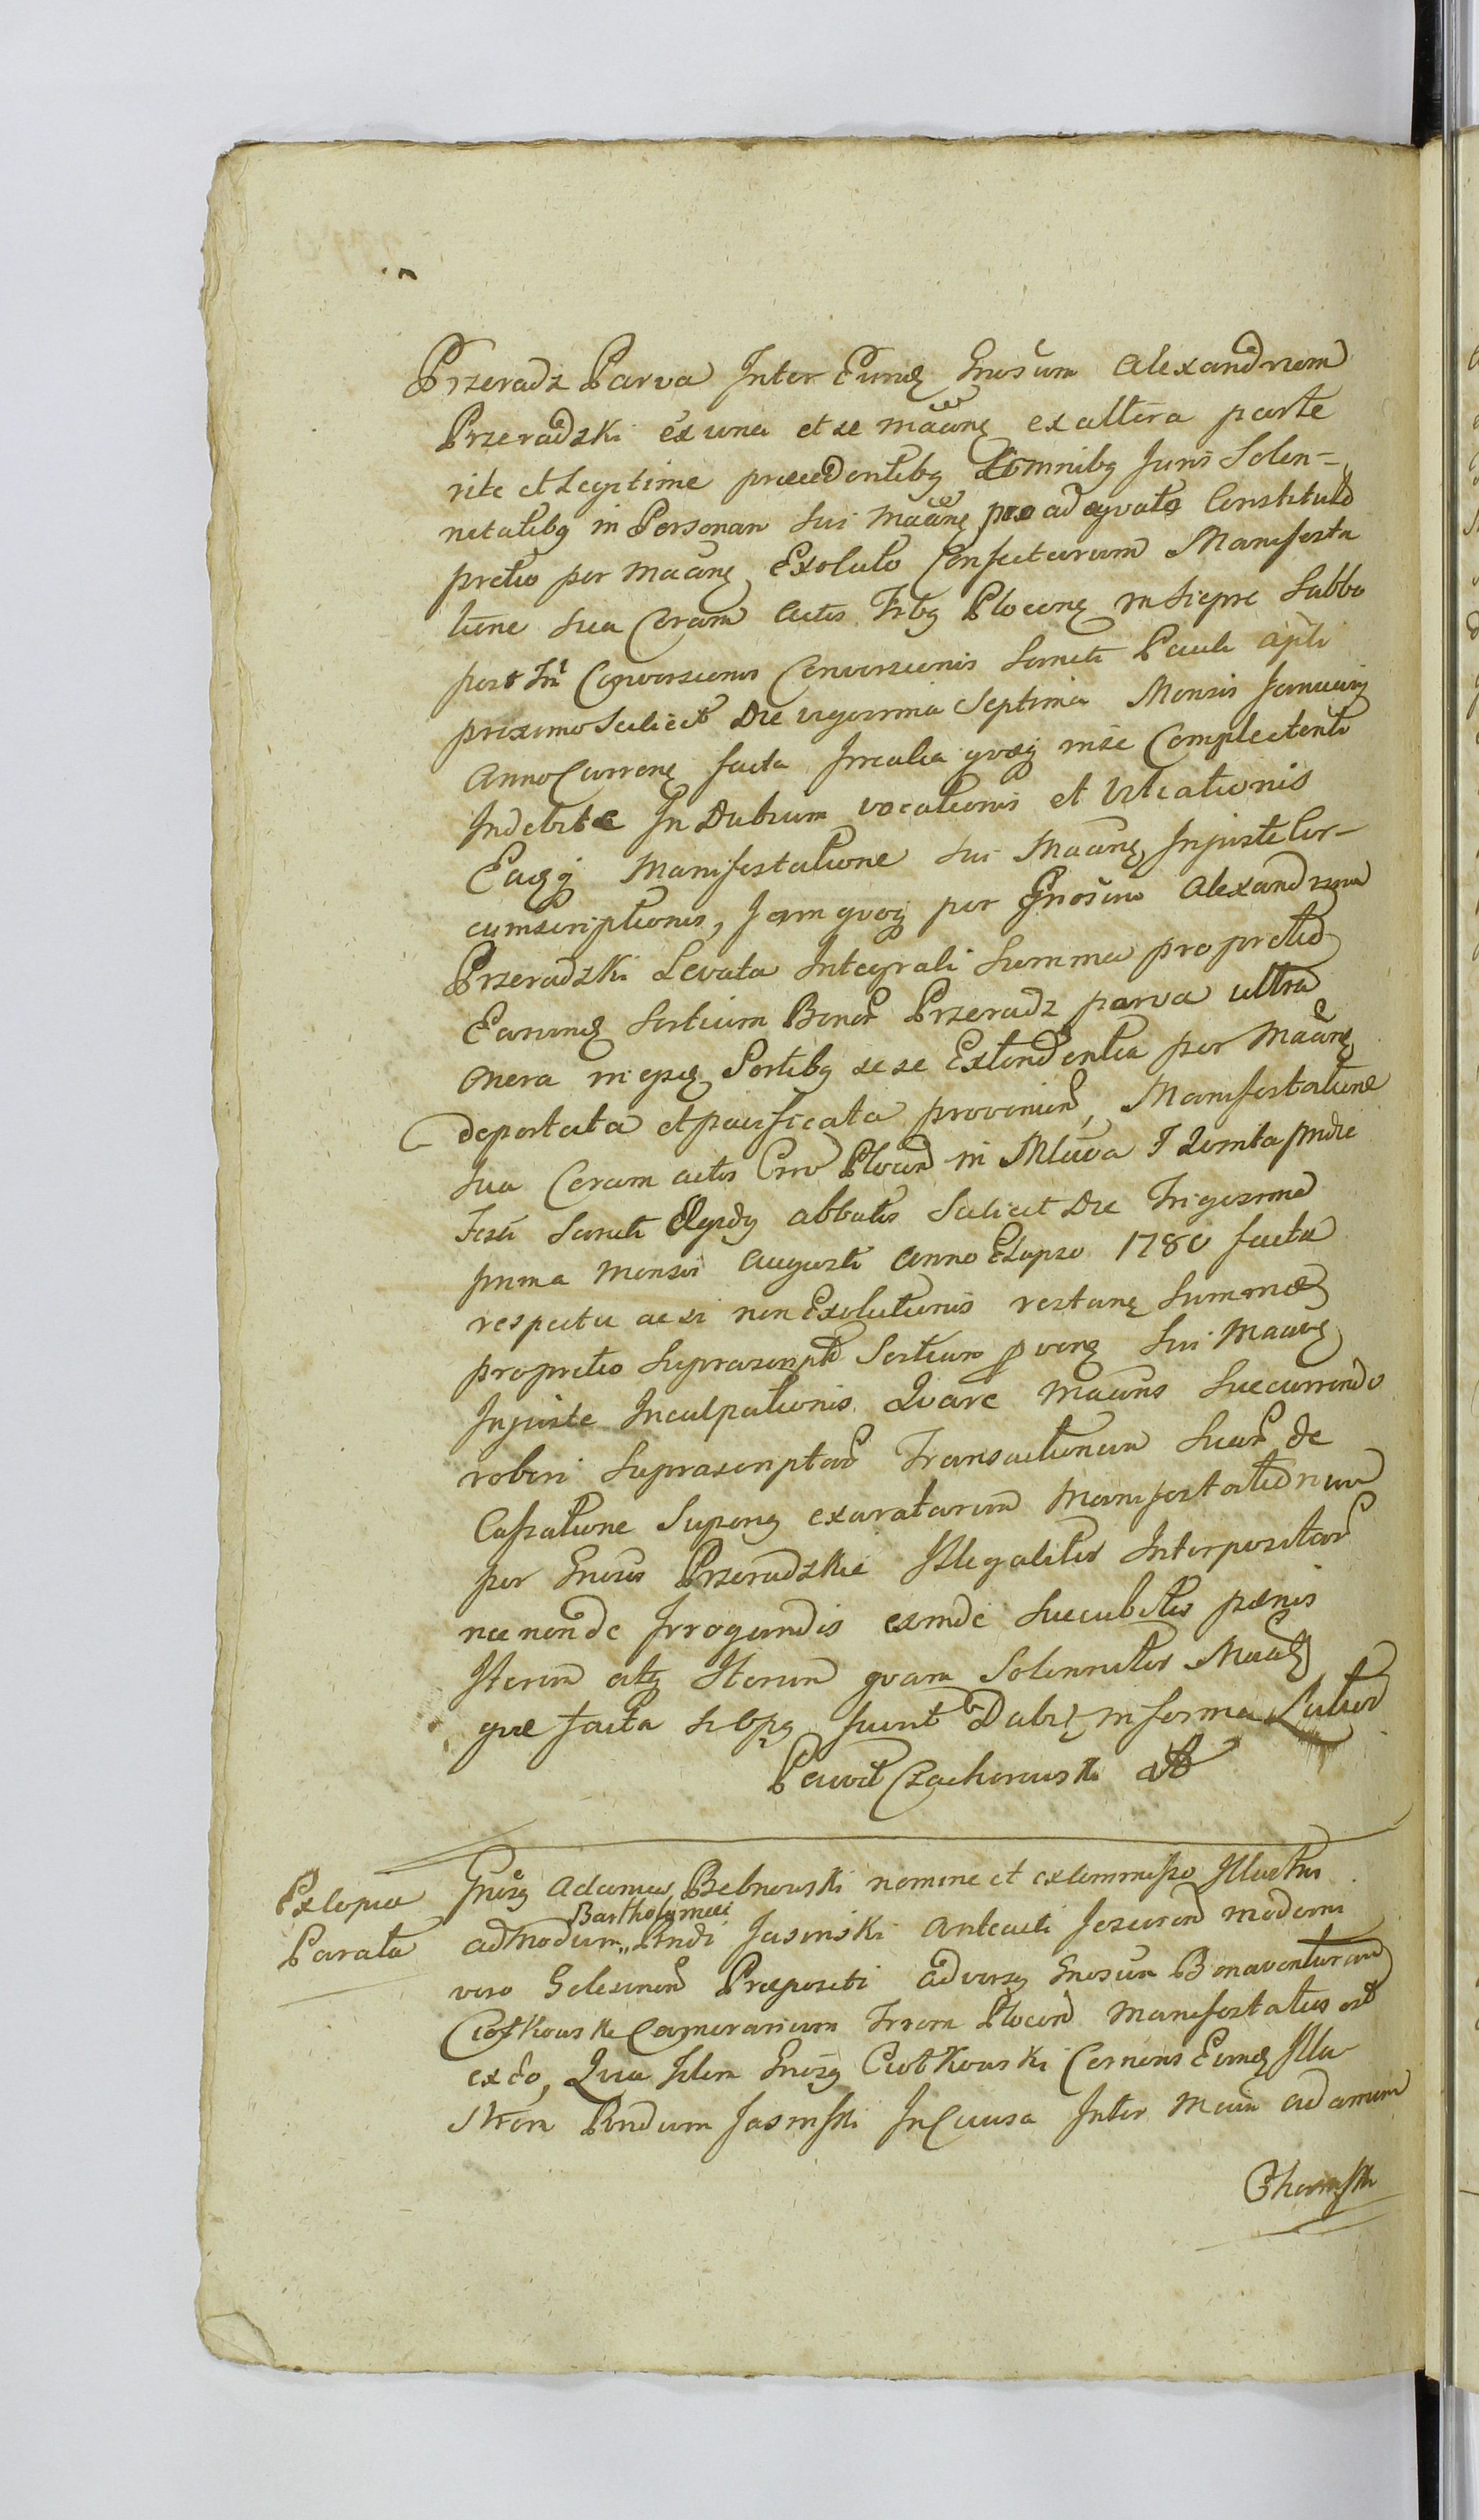 Przeradz Parva Inter Eumq Gnosum Alexandrum
Przeradzki ex una et se maãnq ex altera parte
rite et Legitime praecedentibq omnibq Juris Solen-
netatibq in Personam sui Maãnq pro adaequato Constituto
pretio per Maãnq Exoluto Confectarum Manifesta
tione sua Coram Actis Tribq Plocenq in Sieprc Sabbo
post Fm Conversionis Conversionis Sancti Pauli Apli
proximo Scilicet Die vigesima Septima Mensis Januarij
Anno Currenq facta Irrealia quoq in se Complectenti
Indebite In Dubium vocationis et Viteationis
Eaqq Manifestatione sui Maãnq Injuste Cir-
cumscriptionis, Jam quoq per Gnosum Alexandrum
Przeradzki Levata Integrali Summa pro pretio
Earumq Sortium Bonor Przeradz parva ultra
Onera in ejsq Sortibq se se Extendentia per Maãnq
deportata et pacificata provenien, Manifestatione
sua Coram actis Crro Plocen in Mława F Quinta pridie
Festi Sancti Egidy abbatis Scilicet Die Trigesima
prima Mensis Augusti Anno Elapso 1780 facta
respectu ac si non Exolutionis restanq Summae
pro pretio Suprascripto Sortium pvenq sui Maãnq
Injuste Inculpationis. Quare Maãns Succurrendo
robori Suprascriptar Transactionum Suar de
Cassatione Supenq exaratarum Manifestationum
per Gnosos Przeradzkie Illegaliter Interpositar
nec non de Irrogandis exinde Succubitis paenis
Iterum atq Iterum quam Solenniter Maãtq
que facta Slbpq sunt Dabiq in forma Latior
Pawel Czachorowski
Ex Copia
Parata
Gnosq Adamus Bebnowski nomine et ex Commisso Illustris
admodum Bartholymei Rndi Jasinski Anteacti Jezeren moderni
vero Gelesinen Praepositi adversq Gnosum Bonaventuram
Ciotkowski Camerarium Trrem Plocen Manifestatus est
ex eo, Quia Idem Gnosq Ciotkowski Cernens Eumq Illu
strem Rndum Jasinski In Causa Inter Maãn Adamum